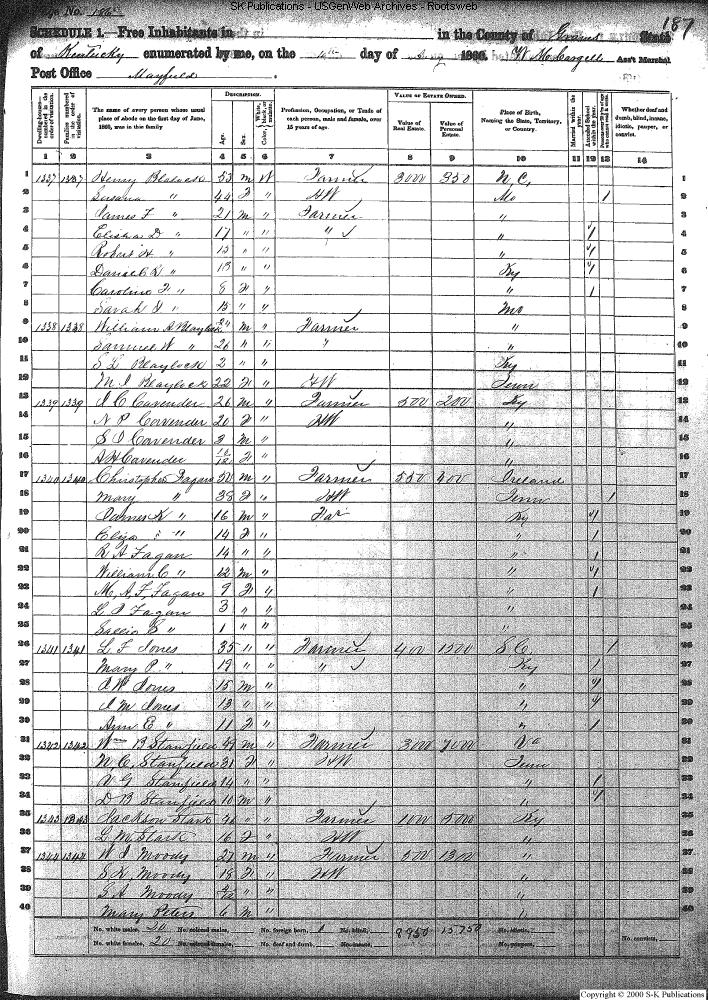 SK Publications - USGenWeb Archives - Rootsweb
Page No. 187
SCHEDULE 1.—Free Inhabitants in in the County of Graves State
of Kentucky enumerated by me, on the day of 1860. Ass't Marshal
Post Office Mayfield.
DESCRIPTION. VALUE OF ESTATE OWNED.
Dwelling-houses—numbered in the order of visitation. Families numbered in the order of visitation. The name of every person whose usual place of abode on the first day of June, 1860, was in this family Age. Sex. Color, White, black, or mulatto. Profession, Occupation, or Trade of each person, male and female, over 15 years of age. Value of Real Estate. Value of Personal Estate. Place of Birth, Naming the State, Territory, or Country. Married within the year. Attended School within the year. Whether deaf and dumb, blind, insane, idiotic, pauper, or convict.
1 2 3 4 5 6 7 8 9 10 11 12 13 14
1 1337 1337 Henry Blalock 53 m W Farmer 3000 350 N.C. 1
2 Susana " 44 F " HW Mo 1 2
3 James F " 21 m " Farmer " 3
4 Elisha D " 17 " " " " 1 4
5 Robert H " 15 " " " 1 5
6 Daniel " 13 " " Ky 1 6
7 Caroline F " 8 F " " 1 7
8 Sarah " " " Mo 8
9 1338 1338 William A Blaylock 24 m " Farmer " 9
10 Samuel W " 26 " " " " 10
11 S L Blaylock 2 " " Ky 11
12 M J Blaylock 22 F " HW Tenn 12
13 1339 1339 J C Cavender 26 m " Farmer 500 200 Ky 13
14 N P Cavender 20 F " HW " 14
15 S J Cavender 3 m " " 15
16 A H Cavender F " " 16
17 1340 1340 Christopher Fagan 50 m " Farmer 550 400 Ireland 17
18 Mary " 38 F " HW Tenn 1 18
19 James K " 16 m " Far Ky 1 19
20 Eliza " 14 F " " 1 20
21 R A Fagan 14 " " " 1 21
22 William C " 12 m " " 1 22
23 M. A. F. Fagan 9 F " " 1 23
24 L J Fagan 3 " " " 24
25 Sallie B " 1 " " " 25
26 1341 1341 L F Jones 35 " " Farmer 400 1500 S C 1 26
27 Mary P " 19 " " " Ky 1 27
28 A W Jones 15 m " " 1 28
29 J M Jones 13 " " " 1 29
30 Ann E " 11 F " " 1 30
31 1342 1342 Wm B Stanfield 49 m " Farmer 3000 7000 Va 31
32 N C Stanfield 31 F " HW Tenn 32
33 V G Stanfield 14 " " " 1 33
34 D B Stanfield 10 m " " 1 34
35 1343 1343 Jackson Stark " " Farmer 1000 5000 Ky 35
36 L M Stark 16 F " HW " 36
37 1344 1344 W J Moody 27 m " Farmer 500 1300 " 37
38 S K Moody 18 F " HW " 38
39 S A Moody " " " 39
40 Mary Peters 6 m " " 40
No. white males, 20 No. colored males, No. foreign born, 1 No. blind, 8950 15750 No. idiotic,
No. white females, 20 No. colored females, No. deaf and dumb, No. insane, No. paupers, No. convicts,
Copyright © 2000 S-K Publications